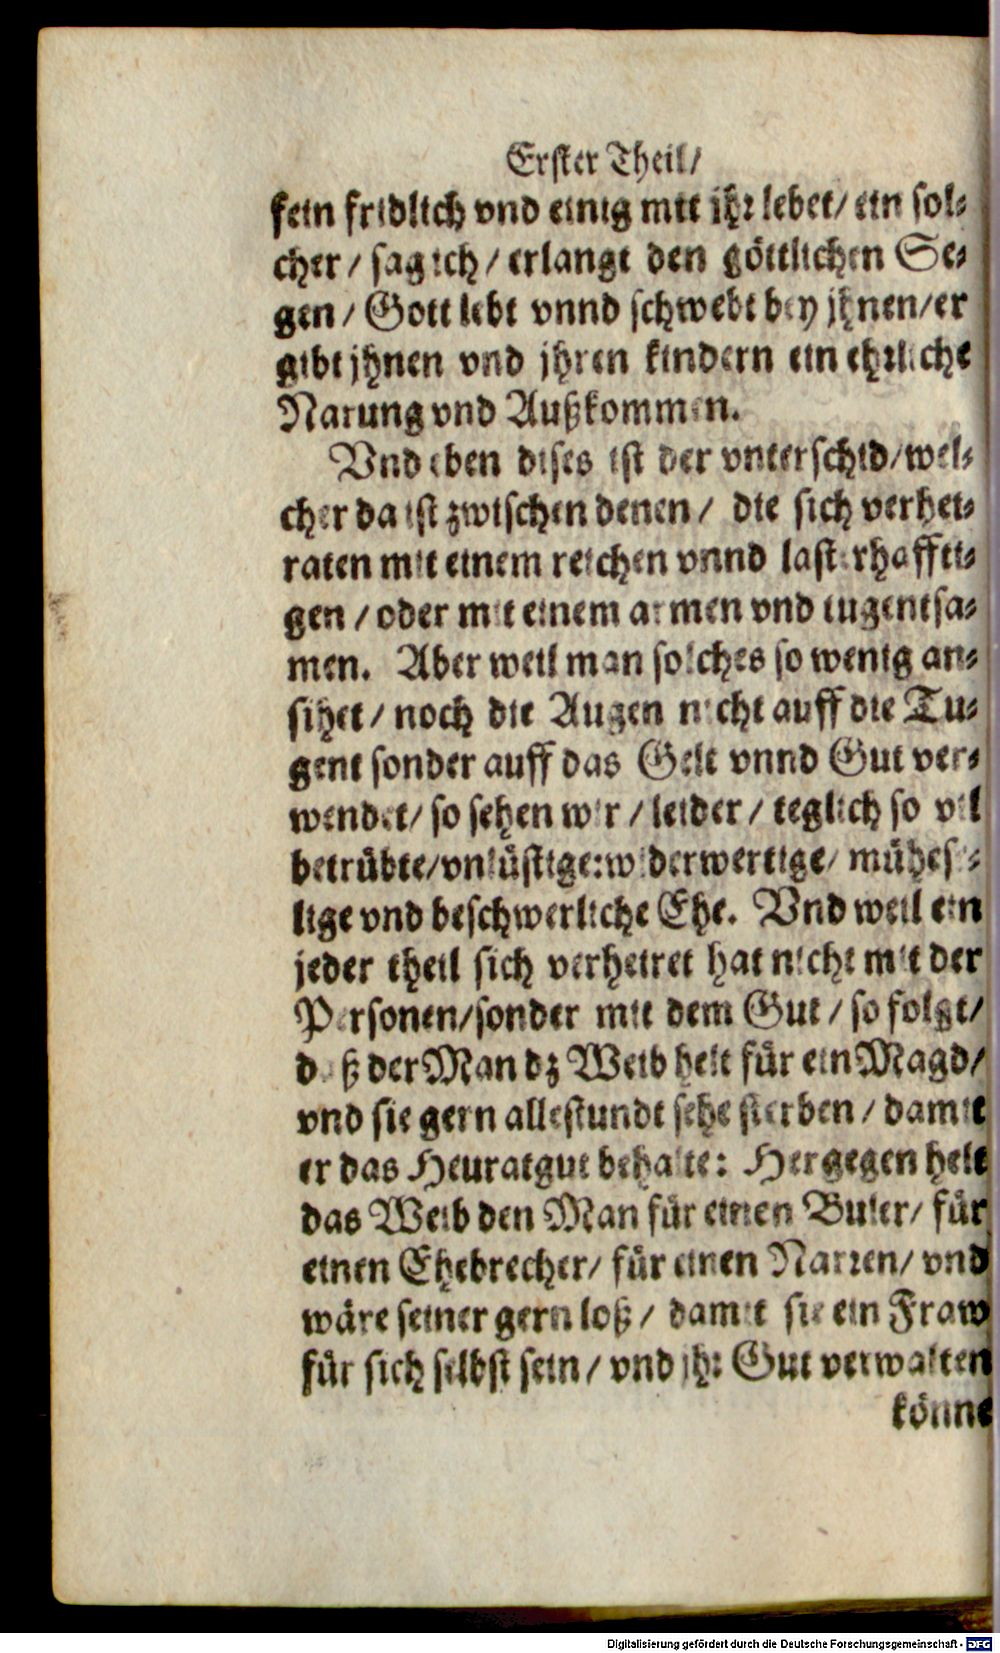 Erster Theil/
fein fridlich vnd einig mit jhr lebet/ ein sol-
cher / sag ich / erlangt den göttlichen Se-
gen / Gott lebt vnnd schwebt bey jhnen/er
gibt jhnen vnd jhren kindern ein ehrliche
Narung vnd Außkommen.
Vnd eben dises ist der vnterschid/wel-
cher da ist zwischen denen / die sich verhei-
raten mit einem reichen vnnd lasterhaffti-
gen / oder mit einem armen vnd tugentsa-
men. Aber weil man solches so wenig an-
sihet / noch die Augen nicht auff die Tu-
gent sonder auff das Gelt vnnd Gut ver-
wendet/ so sehen wir / leider / teglich so vil
betrübte/vnlüstige:widerwertige/ mühese-
lige vnd beschwerliche Ehe. Vnd weil ein
jeder theil sich verheiret hat nicht mit der
Personen/sonder mit dem Gut / so folgt/
daß der Man dz Weib helt für ein Magd/
vnd sie gern allestundt sehe sterben / damit
er das Heuratgut behalte: Hergegen helt
das Weib den Man für einen Buler/ für
einen Ehebrecher/ für einen Narren/ vnd
wäre seiner gern loß / damit sie ein Fraw
für sich selbst sein / vnd jhr Gut verwalten
könne
Digitalisierung gefördert durch die Deutsche Forschungsgemeinschaft - DFG